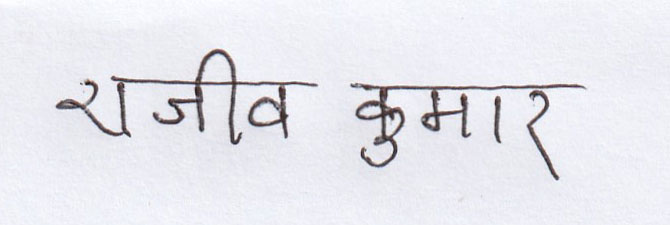 राजीव कुमार